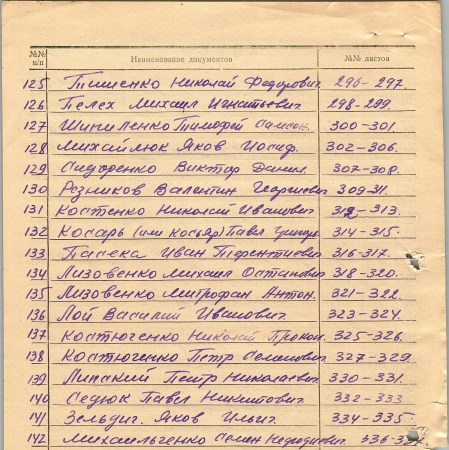 №№ п/п Наименование документов №№ листов
125 Тишенко Николай Федорович 296-297.
126 Пелех Михаил Игнатьевич 298-299.
127 Шипиленко Тимофей Самсон. 300-301.
128 Михайлюк Яков Иосиф. 302-306.
129 Сидоренко Виктор Данил. 307-308.
130 Резников Валентин Георгиевич 309-311.
131 Костенко Николай Иванович 312-313.
132 Косарь (или Косьяр) Павел Григор. 314-315.
133 Пасека Иван 316-317.
134 Лизовенко Михаил Остапович 318-320.
135 Лизовенко Митрофан Антон. 321-322.
136 Лой Василий Иванович 323-324.
137 Костюченко Николай Прокоп. 325-326.
138 Костюченко Петр Семенович 327-329.
139 Липский Петр Николаевич 330-331.
140 Седюк Павел Никитович 332-333
141 Зельдич. Яков Ильич 334-335.
142 Михальченко Семен